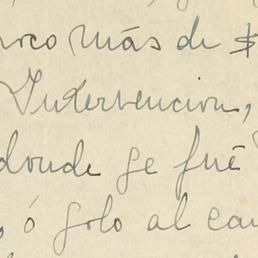 poco más de $
Intervencion,
donde se fué
, ó solo al